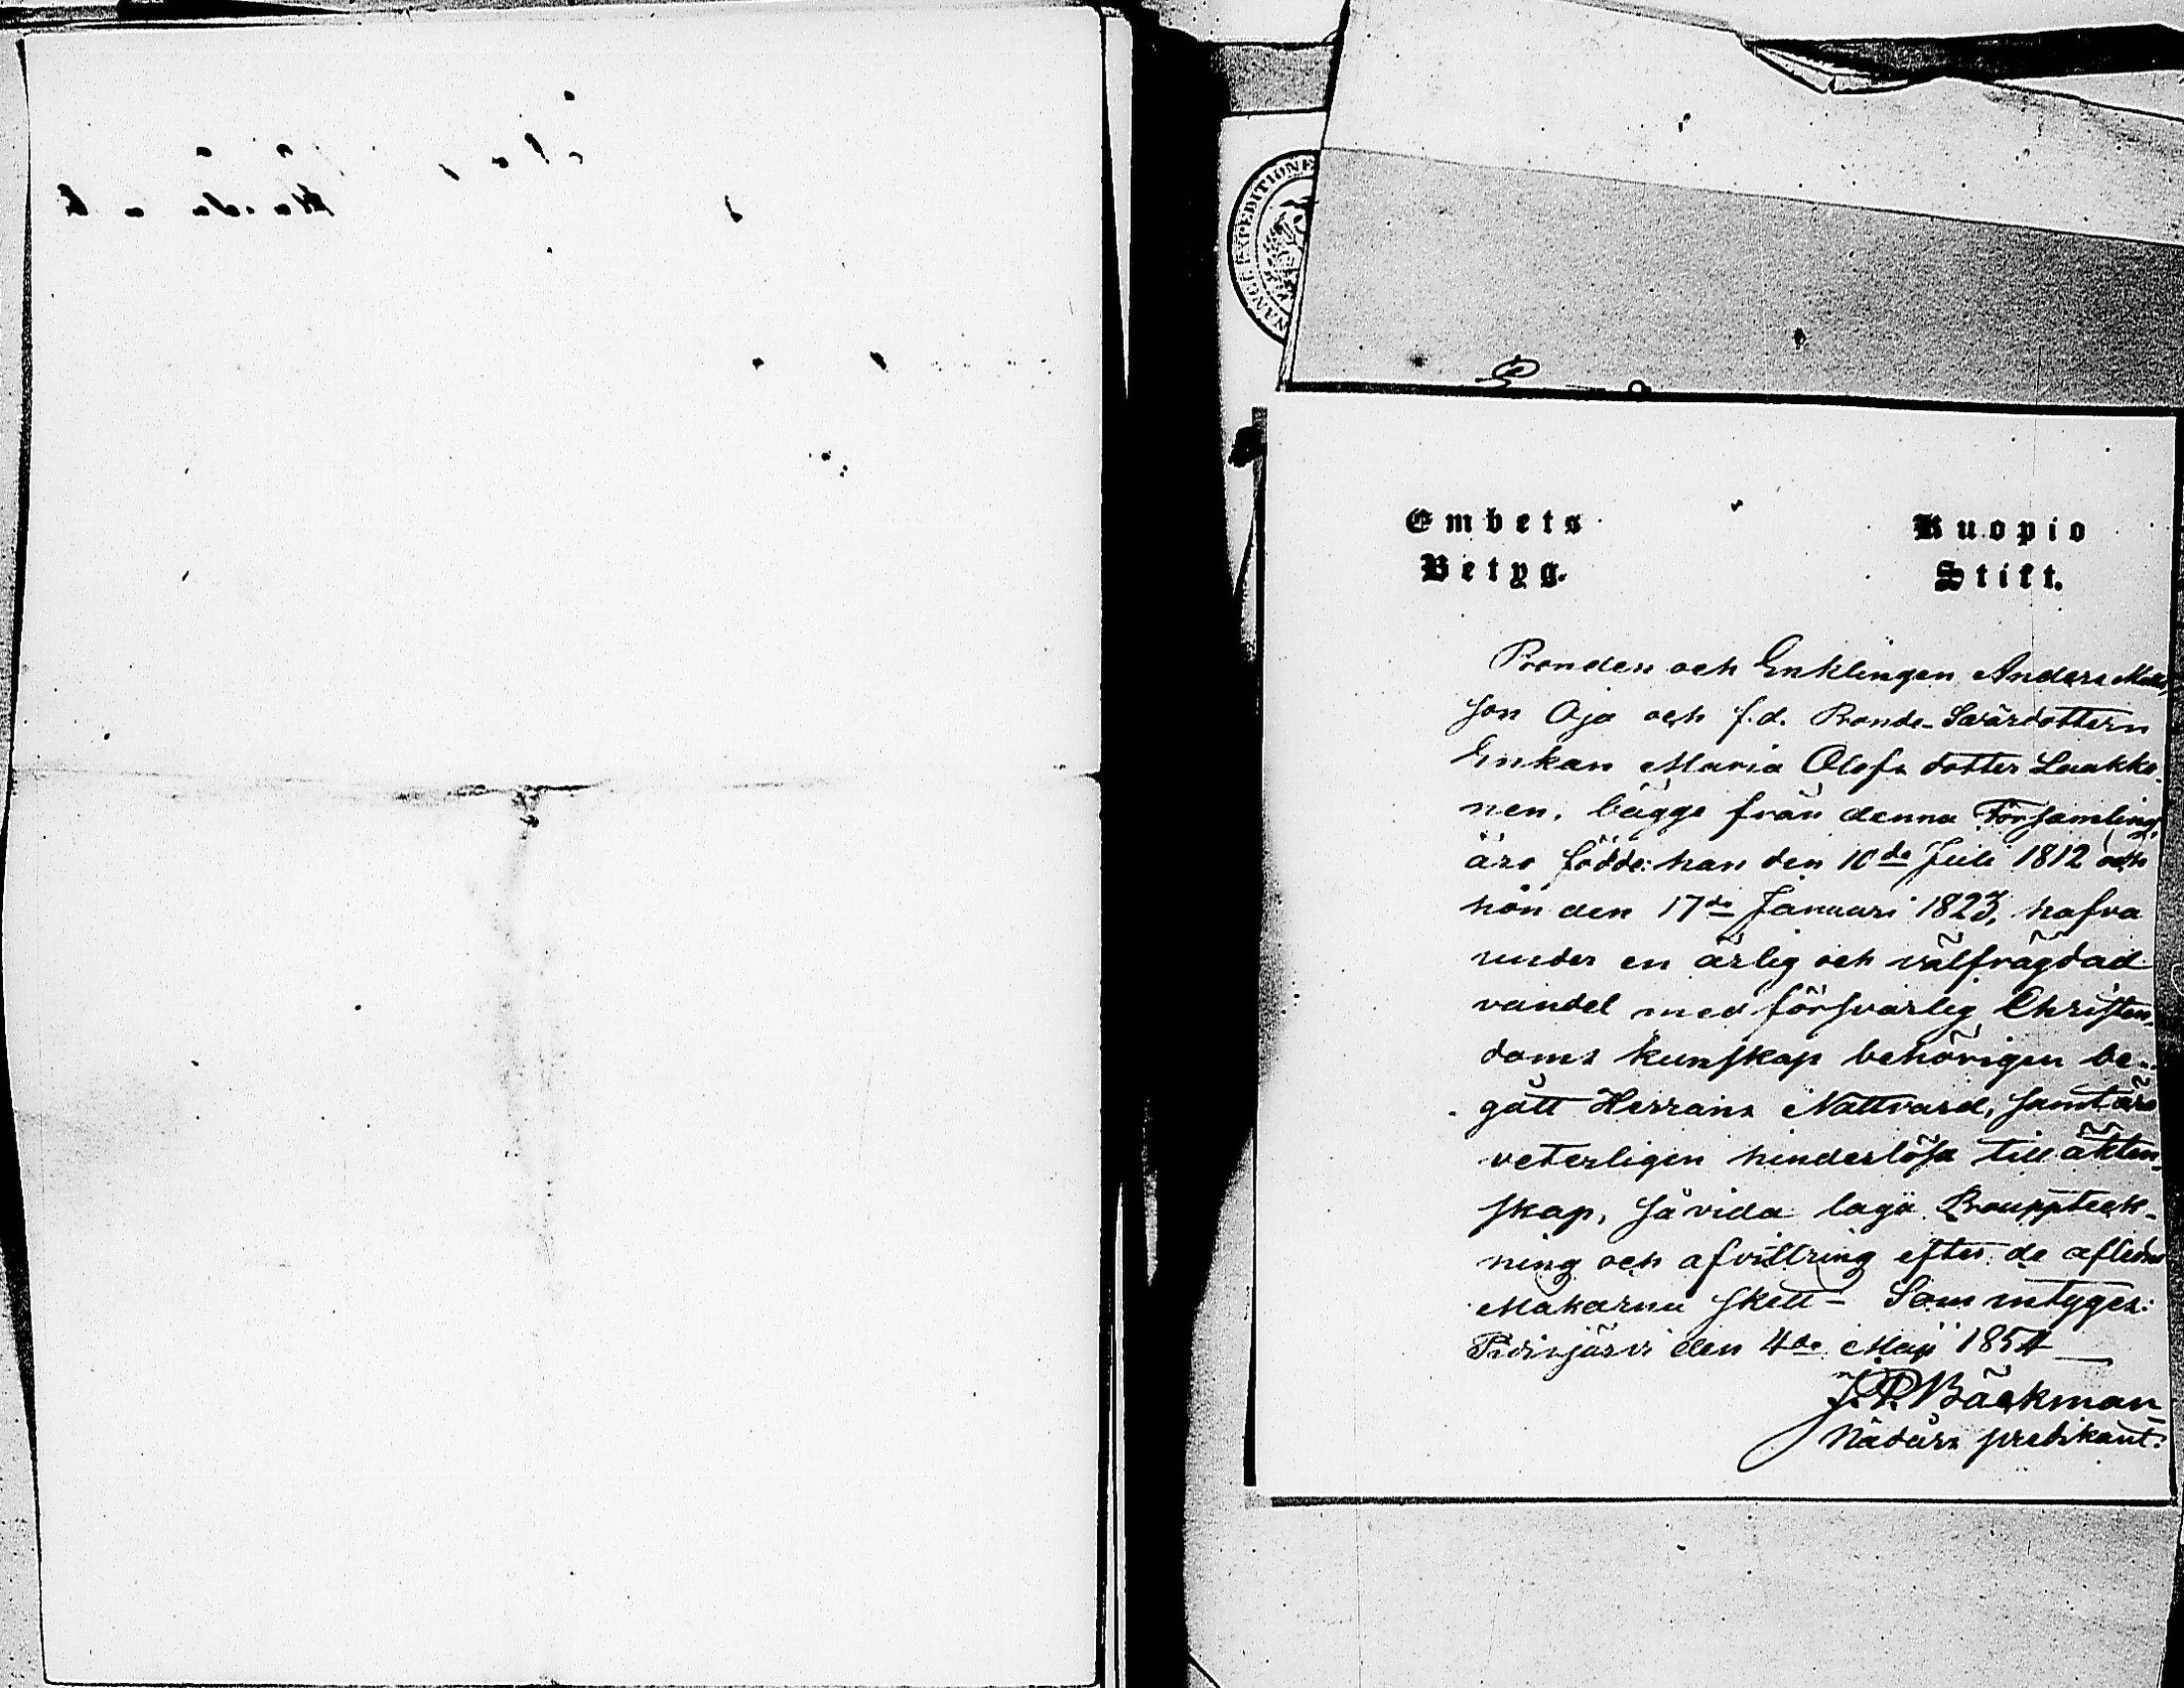 Embets
Betyg.
Kuopio
Stift.
Bonden och Enklingen Anders Matts
son Oja och f.d. Bonde-Svärdottern
Enkan Maria Olofs dotter Laakko-
nen, bägge från denna Församling,
äro födde: han den 10de Juli 1812 och
hon den 17de Januari 1823, hafva
under en ärlig och välfrägdad
vandel med försvarlig Christen-
doms kunskap behörigen be-
gått Herrans Nattvard, samt äro
veterligen hinderlösa till äkten-
skap, såvida laga Bouppteck-
ning och afvittring efter de aflidna
Makarna skett - Som intygar:
Pidisjärvi den 4de Maji 1854
J.P. Bäckman
Nådårs predikant.